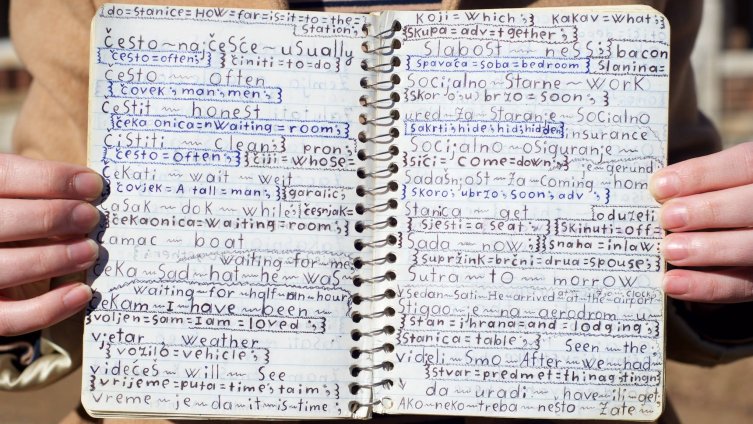 do=stanice=HOW=far=is=it=to=the=
station;
često~na,češće~usually
}često=often;} }činiti=to=do}
često ~ often
}čovek=man=men;}
čestit ~ honest
}čeka onica=nWaiting=room;}
čistiti ~ clean; pron;
}često=often;} }čiji=WHOSE=
čekati ~ wait ~ weit
}čovjek=A tall=man;} }garalic;
čašak ~ dok ~ while; }češnjak=
}čekaonica=waiting=room;}
čamac ~ boat
waiting~for~me
čeka~Sad~hat~he~was
waiting~for~half~an~hour
čekam~I~have~been~
}voljen=sam=I am=loved;}
vjetar ~ weather
}vozilo=vehicle;}
videćeš ~ will ~ see
}vrijeme=puta=time;taim;}
vreme~je~da~it~is~time;
koji=Which;} kakav=what;}
}skupa=adv=tgether;}
slabost ~ ness;} bacon
}spavaća=soba=bedroom} slanina=
Socijalno~Starne~Work
}skor'o;u} brzo=soon;}
ured~za~Staranje~Socialno
}sakrti;hide;hid;hidden} insurance
Socijalno~osiguranje~
}sići;=come=down;} je~gerund
Sadašnjost~za~coming~hom
}skoro;ubrzo=soon;adv;}
Stanica ~ get ~ }oduzeli
}sjesti=a seat;} }Skinuti=off=
Sada ~ now;} }snaha=inlaw;
}supružnik=brčni=drua=spouse;}
Sutra ~ TO ~ morrow
Vsedan~Sati~He~arrived~at~the~airport
Stigao~je~na~aerodrom~u
}stan=ihrana=and=lodging;}
Stanica=table;} Seen~the
videli~Smo~After~we~had
}stvar=predmet=thing
da~uradi~have~ili~get
AKO~neko~treba~nešto~zate~